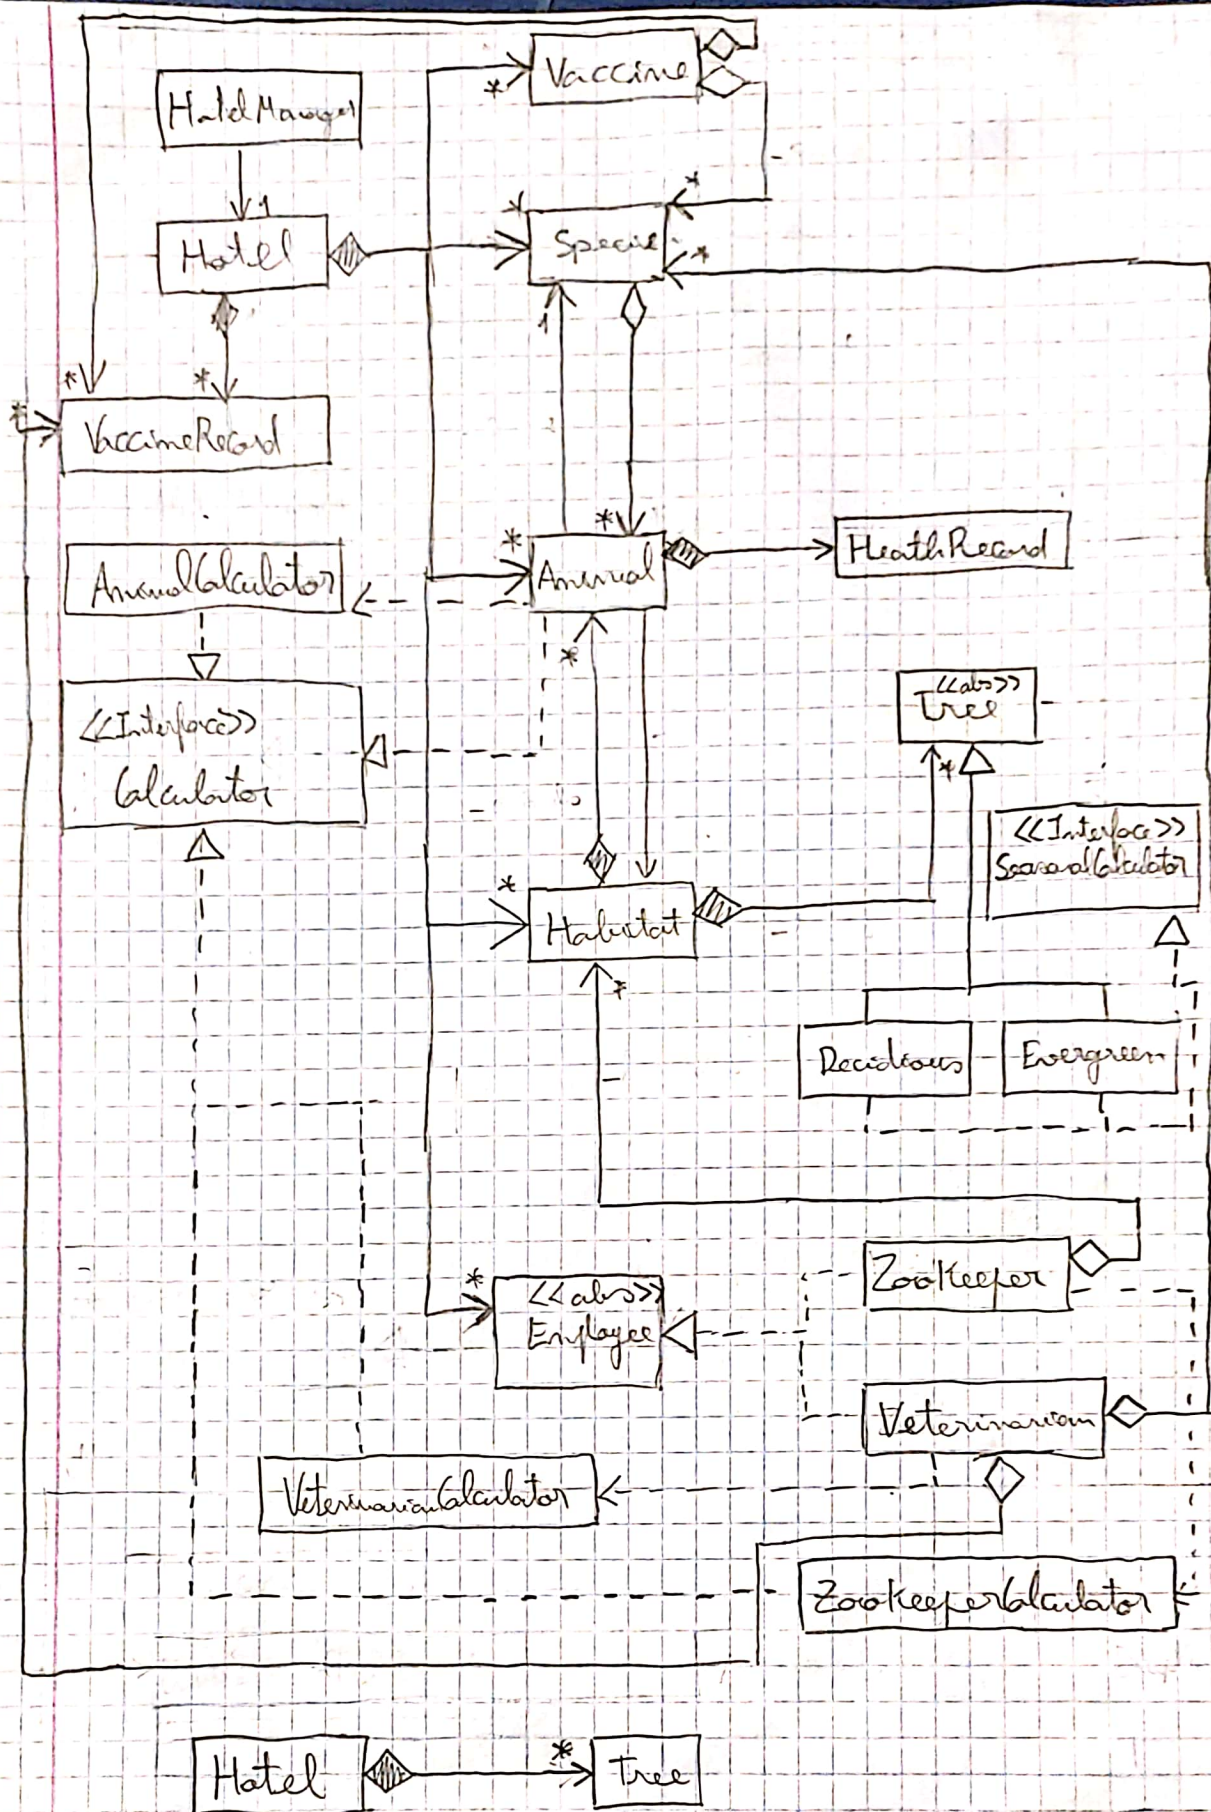 Vaccine
*
HotelManager
1
*
*
Hotel
Specie
*
1
*
*
*
VaccineRecord
*
*
Animal
HeathRecord
AnimalCalculator
*
<<abs>>
Tree
*
<<Interface>>
Calculator
<<Interface>>
SeasonalCalculator
*
Habitat
*
Decidious
Evergreen
ZooKeeper
*
<<abs>>
Employee
Veterinarian
VeterinarianCalculator
ZooKeeperCalculator
Hotel
*
Tree